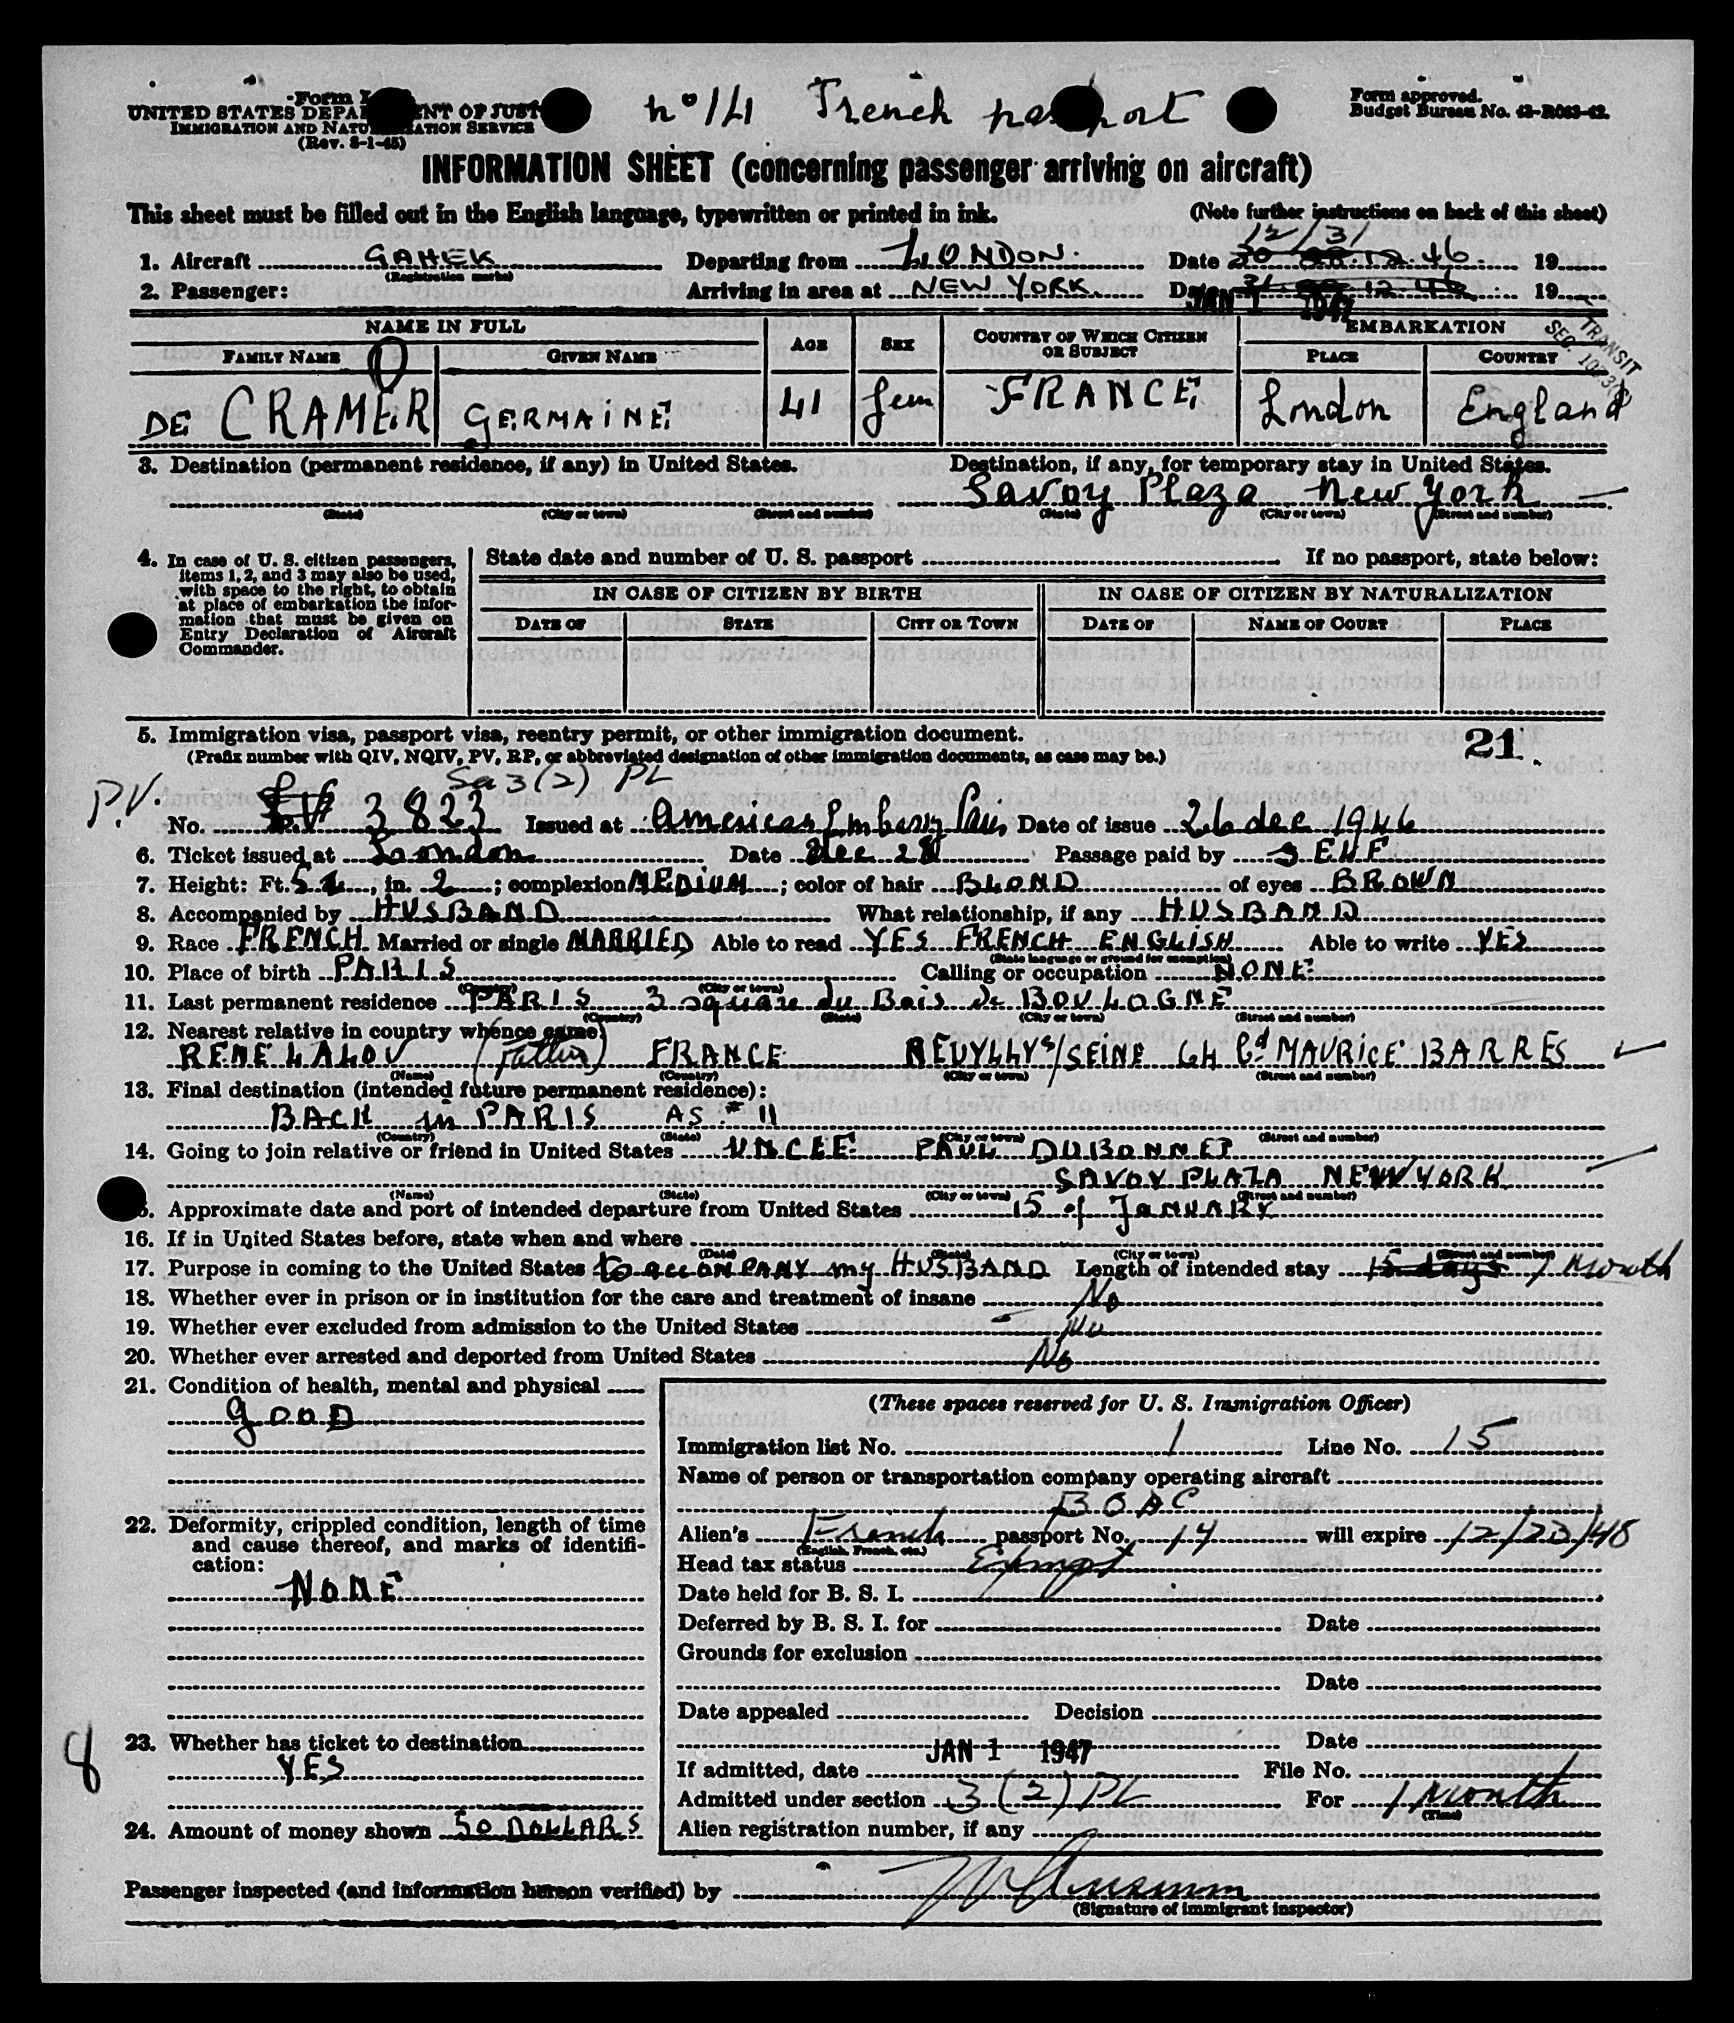 nº 14 French passport
Form
UNITED STATES DEPARTMENT OF JUSTICE
IMMIGRATION AND NATURALIZATION SERVICE
(Rev. 8-1-45)
Form approved.
Budget Bureau No. 43-R063-42.
INFORMATION SHEET (concerning passenger arriving on aircraft)
This sheet must be filled out in the English language, typewritten or printed in ink. (Note further instructions on back of this sheet)
12/31
1. Aircraft GAHEK Departing from LONDON. Date 30 12.46 19
(Registration marks)
2. Passenger: Arriving in area at NEW YORK. Date 31 12 46 19
JAN 1 1947
NAME IN FULL AGE SEX COUNTRY OF WHICH CITIZEN OR SUBJECT EMBARKATION
FAMILY NAME GIVEN NAME PLACE COUNTRY
TRANSIT
DE CRAMER GERMAINE 41 fem FRANCE London England
3. Destination (permanent residence, if any) in United States. Destination, if any, for temporary stay in United States.
Savoy Plaza New York
(State) (City or town) (Street and number) (State) (City or town) (Street and number)
4. In case of U. S. citizen passengers, items 1, 2, and 3 may also be used, with space to the right, to obtain at place of embarkation the information that must be given on Entry Declaration of Aircraft Commander.
State date and number of U. S. passport If no passport, state below:
IN CASE OF CITIZEN BY BIRTH IN CASE OF CITIZEN BY NATURALIZATION
DATE OF STATE CITY OR TOWN DATE OF NAME OF COURT PLACE
5. Immigration visa, passport visa, reentry permit, or other immigration document. 21
(Prefix number with QIV, NQIV, PV, RP, or abbreviated designation of other immigration documents, as case may be.)
3(2) PL
P.V. No. 3823 Issued at American Embassy Paris Date of issue 26 dec 1946
6. Ticket issued at London Date Dec 28 Passage paid by SELF
7. Height: Ft. 5, in. 2; complexion MEDIUM; color of hair BLOND of eyes BROWN
8. Accompanied by HUSBAND What relationship, if any HUSBAND
9. Race FRENCH Married or single MARRIED Able to read YES FRENCH ENGLISH Able to write YES
(State language or ground for exemption)
10. Place of birth PARIS Calling or occupation NONE
(Country) (City or town)
11. Last permanent residence PARIS 3 square du Bois de BOULOGNE
(Country) (State) (City or town) (Street and number)
12. Nearest relative in country whence came
RENE LALOU (Father) FRANCE NEUYLLY s/SEINE 64 Bd MAURICE BARRES
(Name) (Country) (City or town) (Street and number)
13. Final destination (intended future permanent residence):
BACK in PARIS AS # 11
(Country) (State) (City or town) (Street and number)
14. Going to join relative or friend in United States UNCLE PAUL DUBONNET
SAVOY PLAZA NEW YORK
(Name) (State) (City or town) (Street and number)
15. Approximate date and port of intended departure from United States 15 of JANUARY
16. If in United States before, state when and where
(Date) (State) (City or town) (Street and number)
17. Purpose in coming to the United States to accOMPANY my HUSBAND Length of intended stay 15 days 1 month
18. Whether ever in prison or in institution for the care and treatment of insane No
19. Whether ever excluded from admission to the United States No
20. Whether ever arrested and deported from United States No
21. Condition of health, mental and physical
GOOD
22. Deformity, crippled condition, length of time and cause thereof, and marks of identification:
NONE
8
23. Whether has ticket to destination
YES
24. Amount of money shown 50 DOLLARS
(These spaces reserved for U. S. Immigration Officer)
Immigration list No. 1 Line No. 15
Name of person or transportation company operating aircraft
BOAC
Alien's French passport No. 14 will expire 12/23/48
(English, French, etc.)
Head tax status Exempt
Date held for B. S. I.
Deferred by B. S. I. for Date
Grounds for exclusion
Date
Date appealed Decision
Date
JAN 1 1947
If admitted, date File No.
Admitted under section 3(2) PL For 1 Month
(Time)
Alien registration number, if any
Passenger inspected (and information hereon verified) by
(Signature of immigrant inspector)